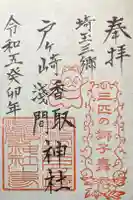 奉拝
三匹の獅子舞
埼玉三郷
戸ヶ崎香取浅間神社
令和五癸卯年